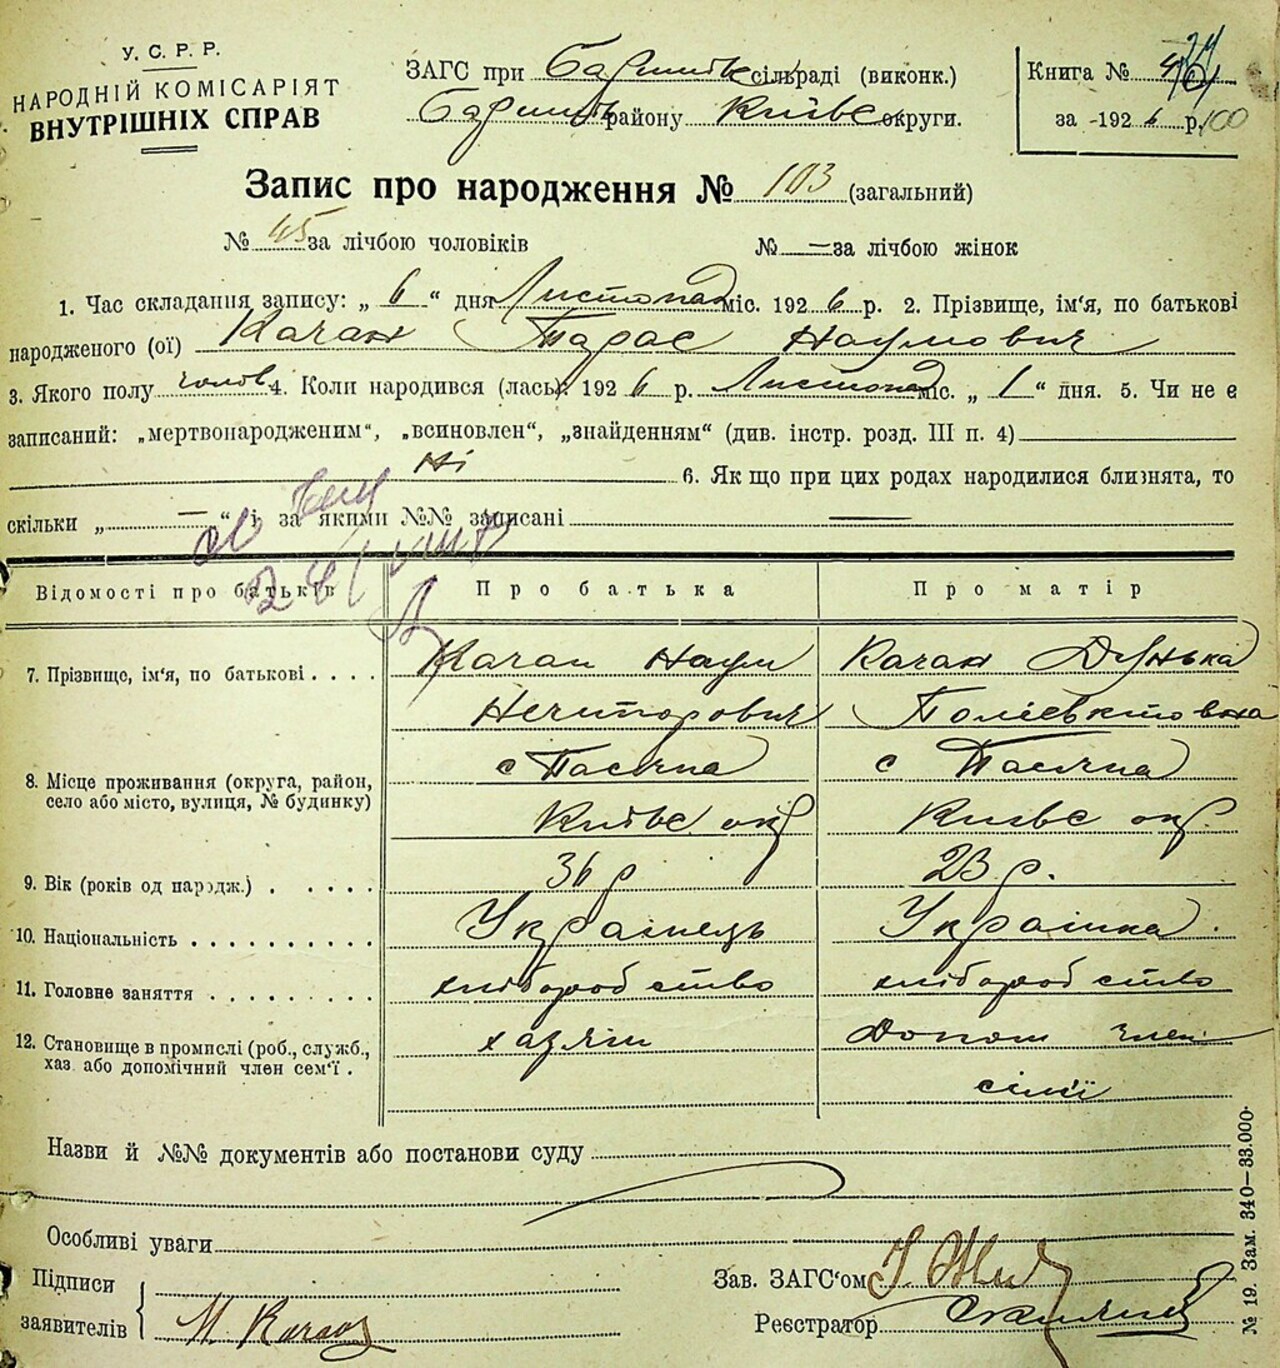 У. С. Р. Р.
НАРОДНІЙ КОМІСАРІЯТ
ВНУТРІШНІХ СПРАВ
ЗАГС при Баришівс сільраді (виконк.)
Баришів району Київс округи.
Книга №
за -1926 р. 100
Запис про народження № 103 (загальний)
№ 45 за лічбою чоловіків № — за лічбою жінок
1. Час складання запису: „ 6 “ дня Листопад міс. 1926 р. 2. Прізвище, ім'я, по батькові
народженого (ої) Качан Тарас Наумович
3. Якого полу чолов 4. Коли народився (лась): 1926 р. Листопад міс. „ 1 “ дня. 5. Чи не є
записаний: „мертвонародженим“, „всиновлен“, „знайденням“ (див. інстр. розд. III п. 4)
Ні 6. Як що при цих родах народилися близнята, то
скільки „ — “ і за якими №№ записані —
Відомості про батьків Про батька Про матір
7. Прізвище, ім'я, по батькові . . . . Качан Наум Качан Дунька
Несторович Поліевктовна
8. Місце проживання (округа, район, с Пасічна с Пасічна
село або місто, вулиця, № будинку) Київс окр Київс окр.
9. Вік (років од народж.) . . . . . 36 р 23 р.
10. Національність . . . . . . . . . . Українець Українка.
11. Головне заняття . . . . . . . . . хліборобство хліборобство
12. Становище в промислі (роб., служб., хазяін Допом член
хаз або допомічний член сем'ї . сімї
Назви й №№ документів або постанови суду
Особливі уваги
Підписи
заявителів М. Качан
Зав. ЗАГС'ом
Реєстратор
№ 19. Зам. 340—33.000.